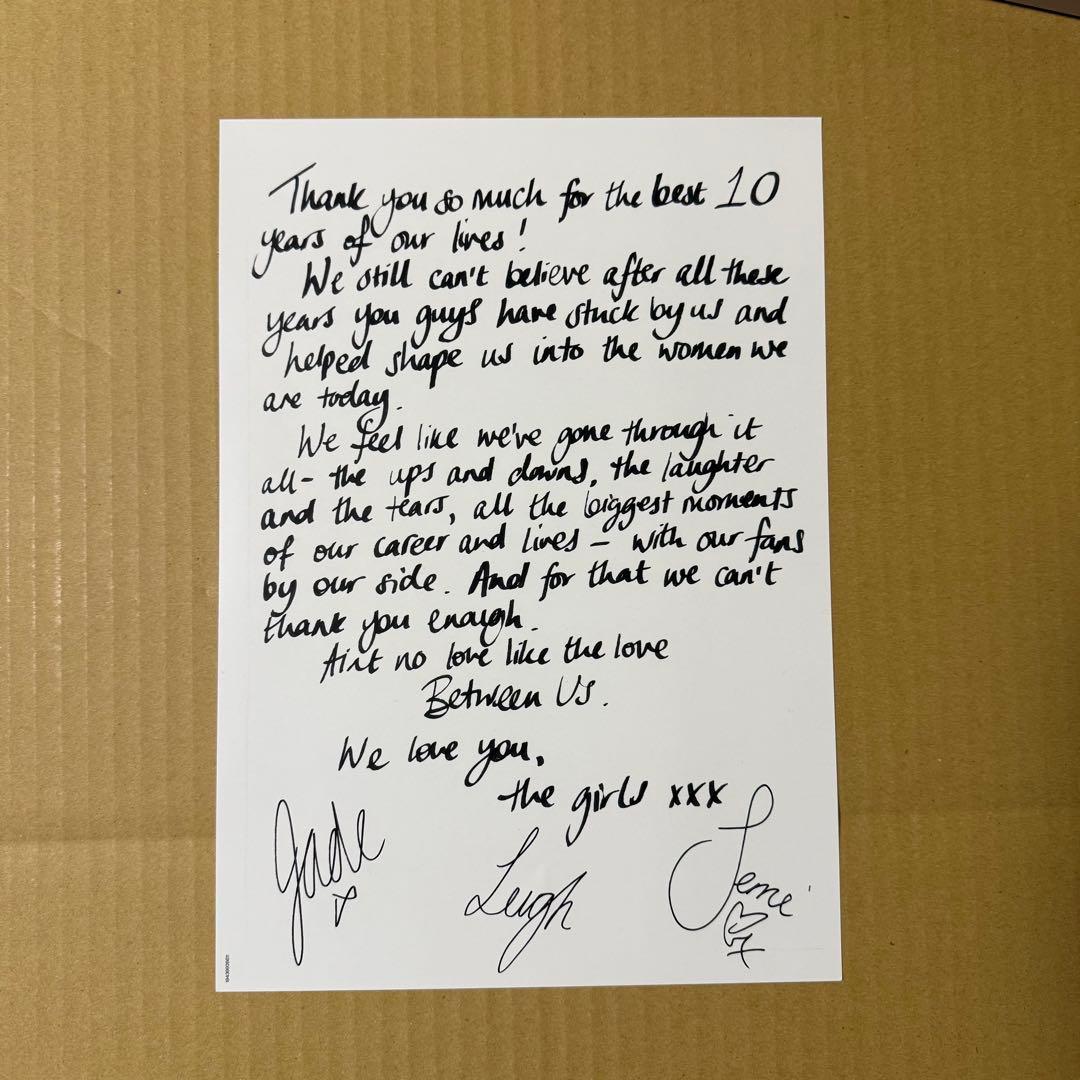 Thank you so much for the best 10
years of our lives!
We still can't believe after all these
years you guys have stuck by us and
helped shape us into the women we
are today.
We feel like we've gone through it
all- the ups and downs, the laughter
and the tears, all the biggest moments
of our career and lives - with our fans
by our side. And for that we can't
thank you enough.
Ain't no love like the love
Between Us.
We love you,
the girls xxx
Jade x
Leigh